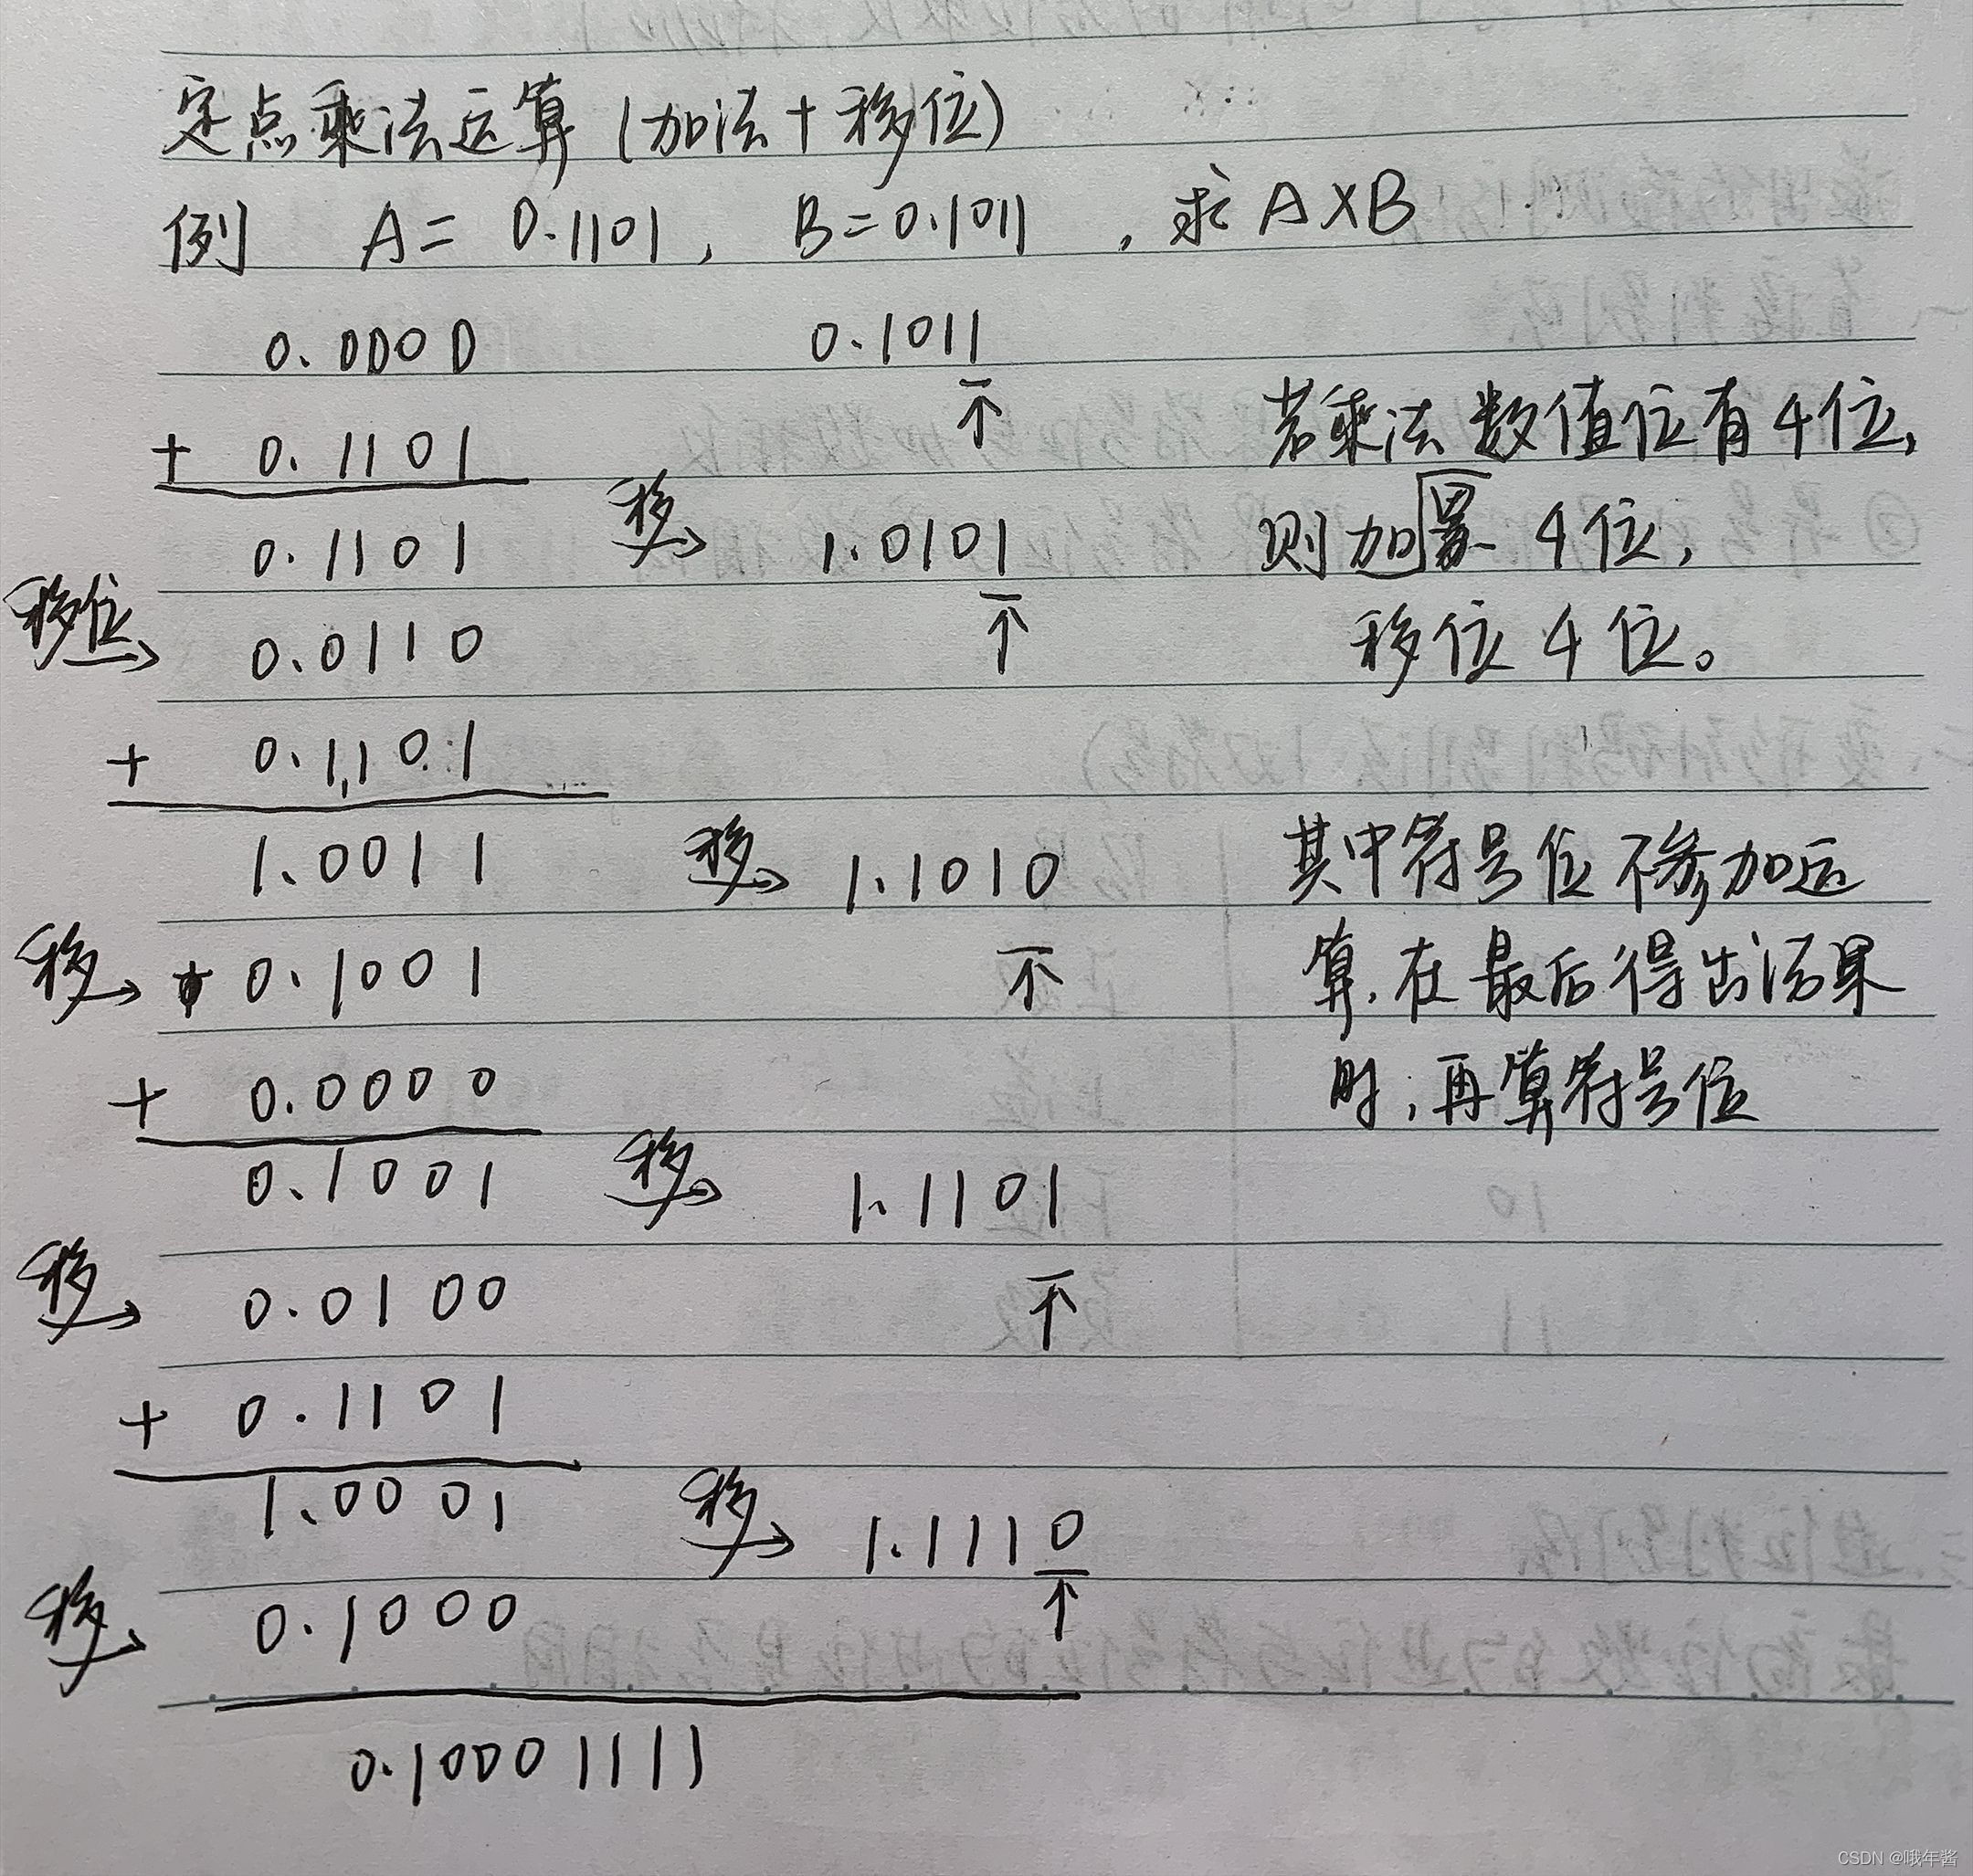 定点乘法运算(加法+移位)
例 A=0.1101, B=0.1011 ,求A×B
0.0000 0.1011
↑
+ 0.1101 若乘法数值位有4位,
0.1101 移→ 1.0101 则加 4位,
↑
移位→ 0.0110 移位4位。
+ 0.1101
1.0011 移→ 1.1010 其中符号位不参加运
移→ 0.1001 ↑ 算,在最后得出结果
+ 0.0000 时,再算符号位
0.1001 移→ 1.1101
移→ 0.0100 ↑
+ 0.1101
1.0001 移→ 1.1110
移→ 0.1000 ↑
0.10001111
CSDN @哦年酱